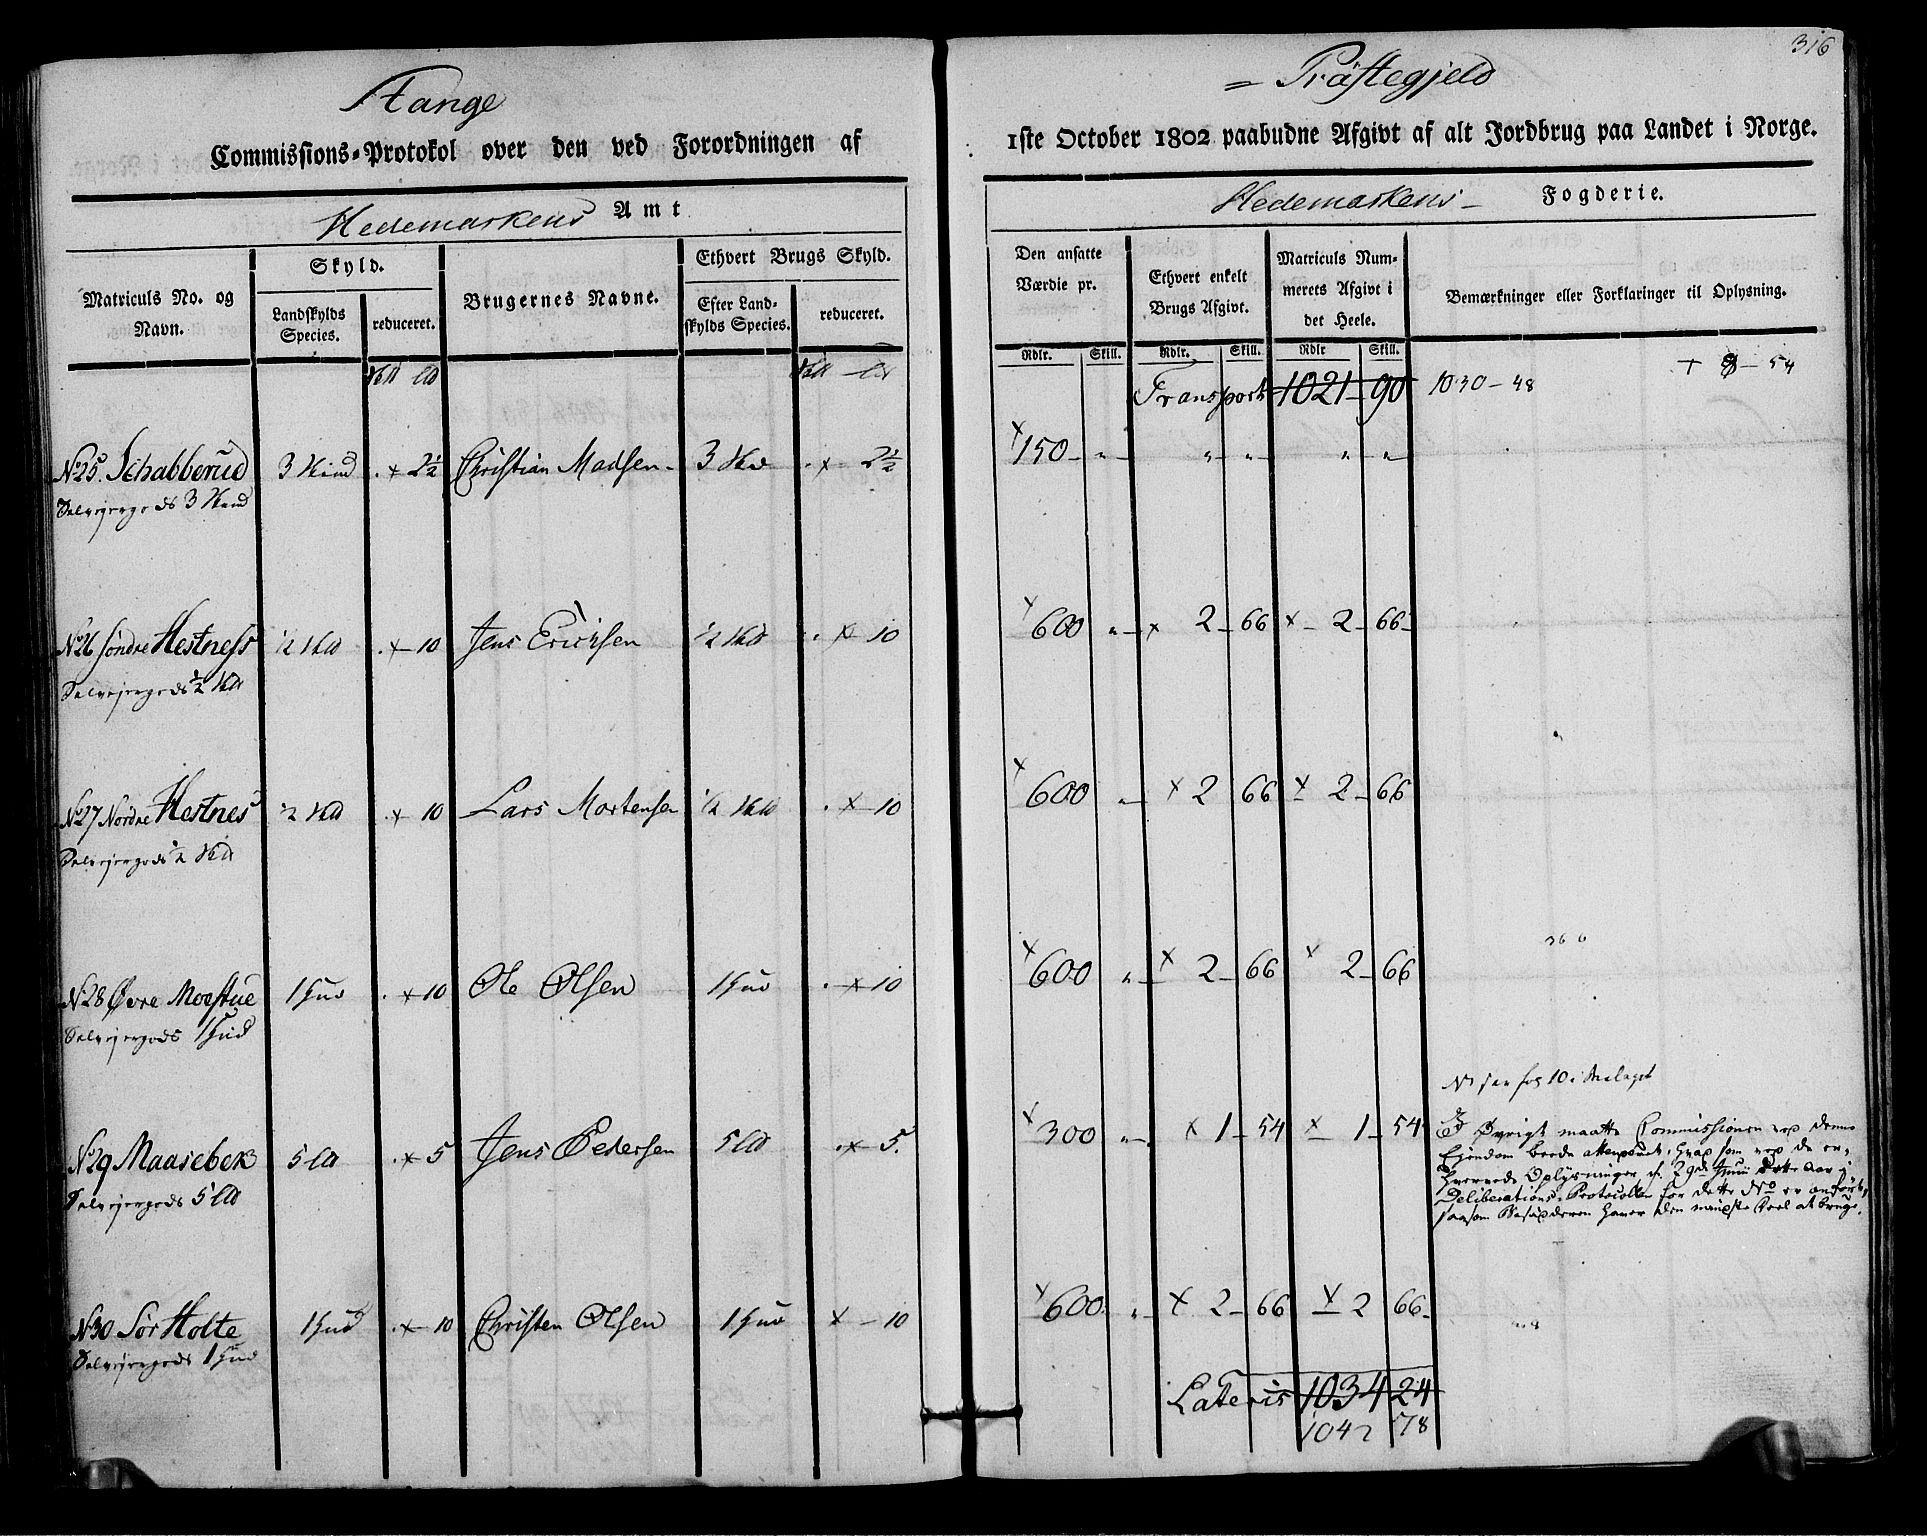 316
Stange
= Præstegjeld
Commissions-Protokol over den ved Forordningen af
1ste October 1802 paabudne Afgivt af alt Jordbrug paa Landet i Norge.
Hedemarkens Amt
Hedemarkens Fogderie.
Matriculs No. og Navn.
Skyld.
Landskylds Species.
reduceret.
Brugernes Navne.
Ethvert Brugs Skyld.
Efter Landskylds Species.
reduceret.
Den ansatte Værdie pr.
Ethvert enkelt Brugs Afgivt.
Matriculs Nummerets Afgivt i det Heele.
Bemærkninger eller Forklaringer til Oplysning.
Rdlr. Skill. Rdlr. Skill. Rdlr Skill.
Transport 1021 - 90 1030 - 48 + 8 - 54
No 25. Schabberud 3 Hud . x 2½ Christian Madsen - 3 Hud . x 2½ x 150 - " - " - " - " "
Selvejergods 3 Hud
No 26 Søndre Hestness ½ Skd . x 10 Jens Erichsen ½ Skd . x 10 x 600 " - x 2 - 66 x - 2 - 66 -
Selvejergods ½ Skd
No 27 Nordre Hestnes ½ Skd . x 10 Lars Mortensen ½ Skd . x 10 x 600 " - x 2 66 x 2 - 66
Selvejergods ½ Skd
No 28 Øvre Moestue 1 Hud . x 10 Ole Olsen 1 Hud . x 10 x 600 " - x 2 - 66 x 2 - 66
Selvejergods 1 Hud
No 29 Maasebek 5 Ld . x 5 Jens Pedersen 5 Ld . x 5. x 300 " - x 1 - 54 x 1 - 54
Selvejergods 5 Ld
Øvrigt maatte Commissionen ved denne
Ejendom
Oplysninger
Deliberations-Protocollen for dette No er anført,
saasom
No 30 Sør Holte 1 Hud . x 10 Christen Olsen 1 Hud x - 10 x 600. " - x 2 - 66 x 2 66 -
Selvejergods 1 Hud
Lateris 1034 24
1042 78